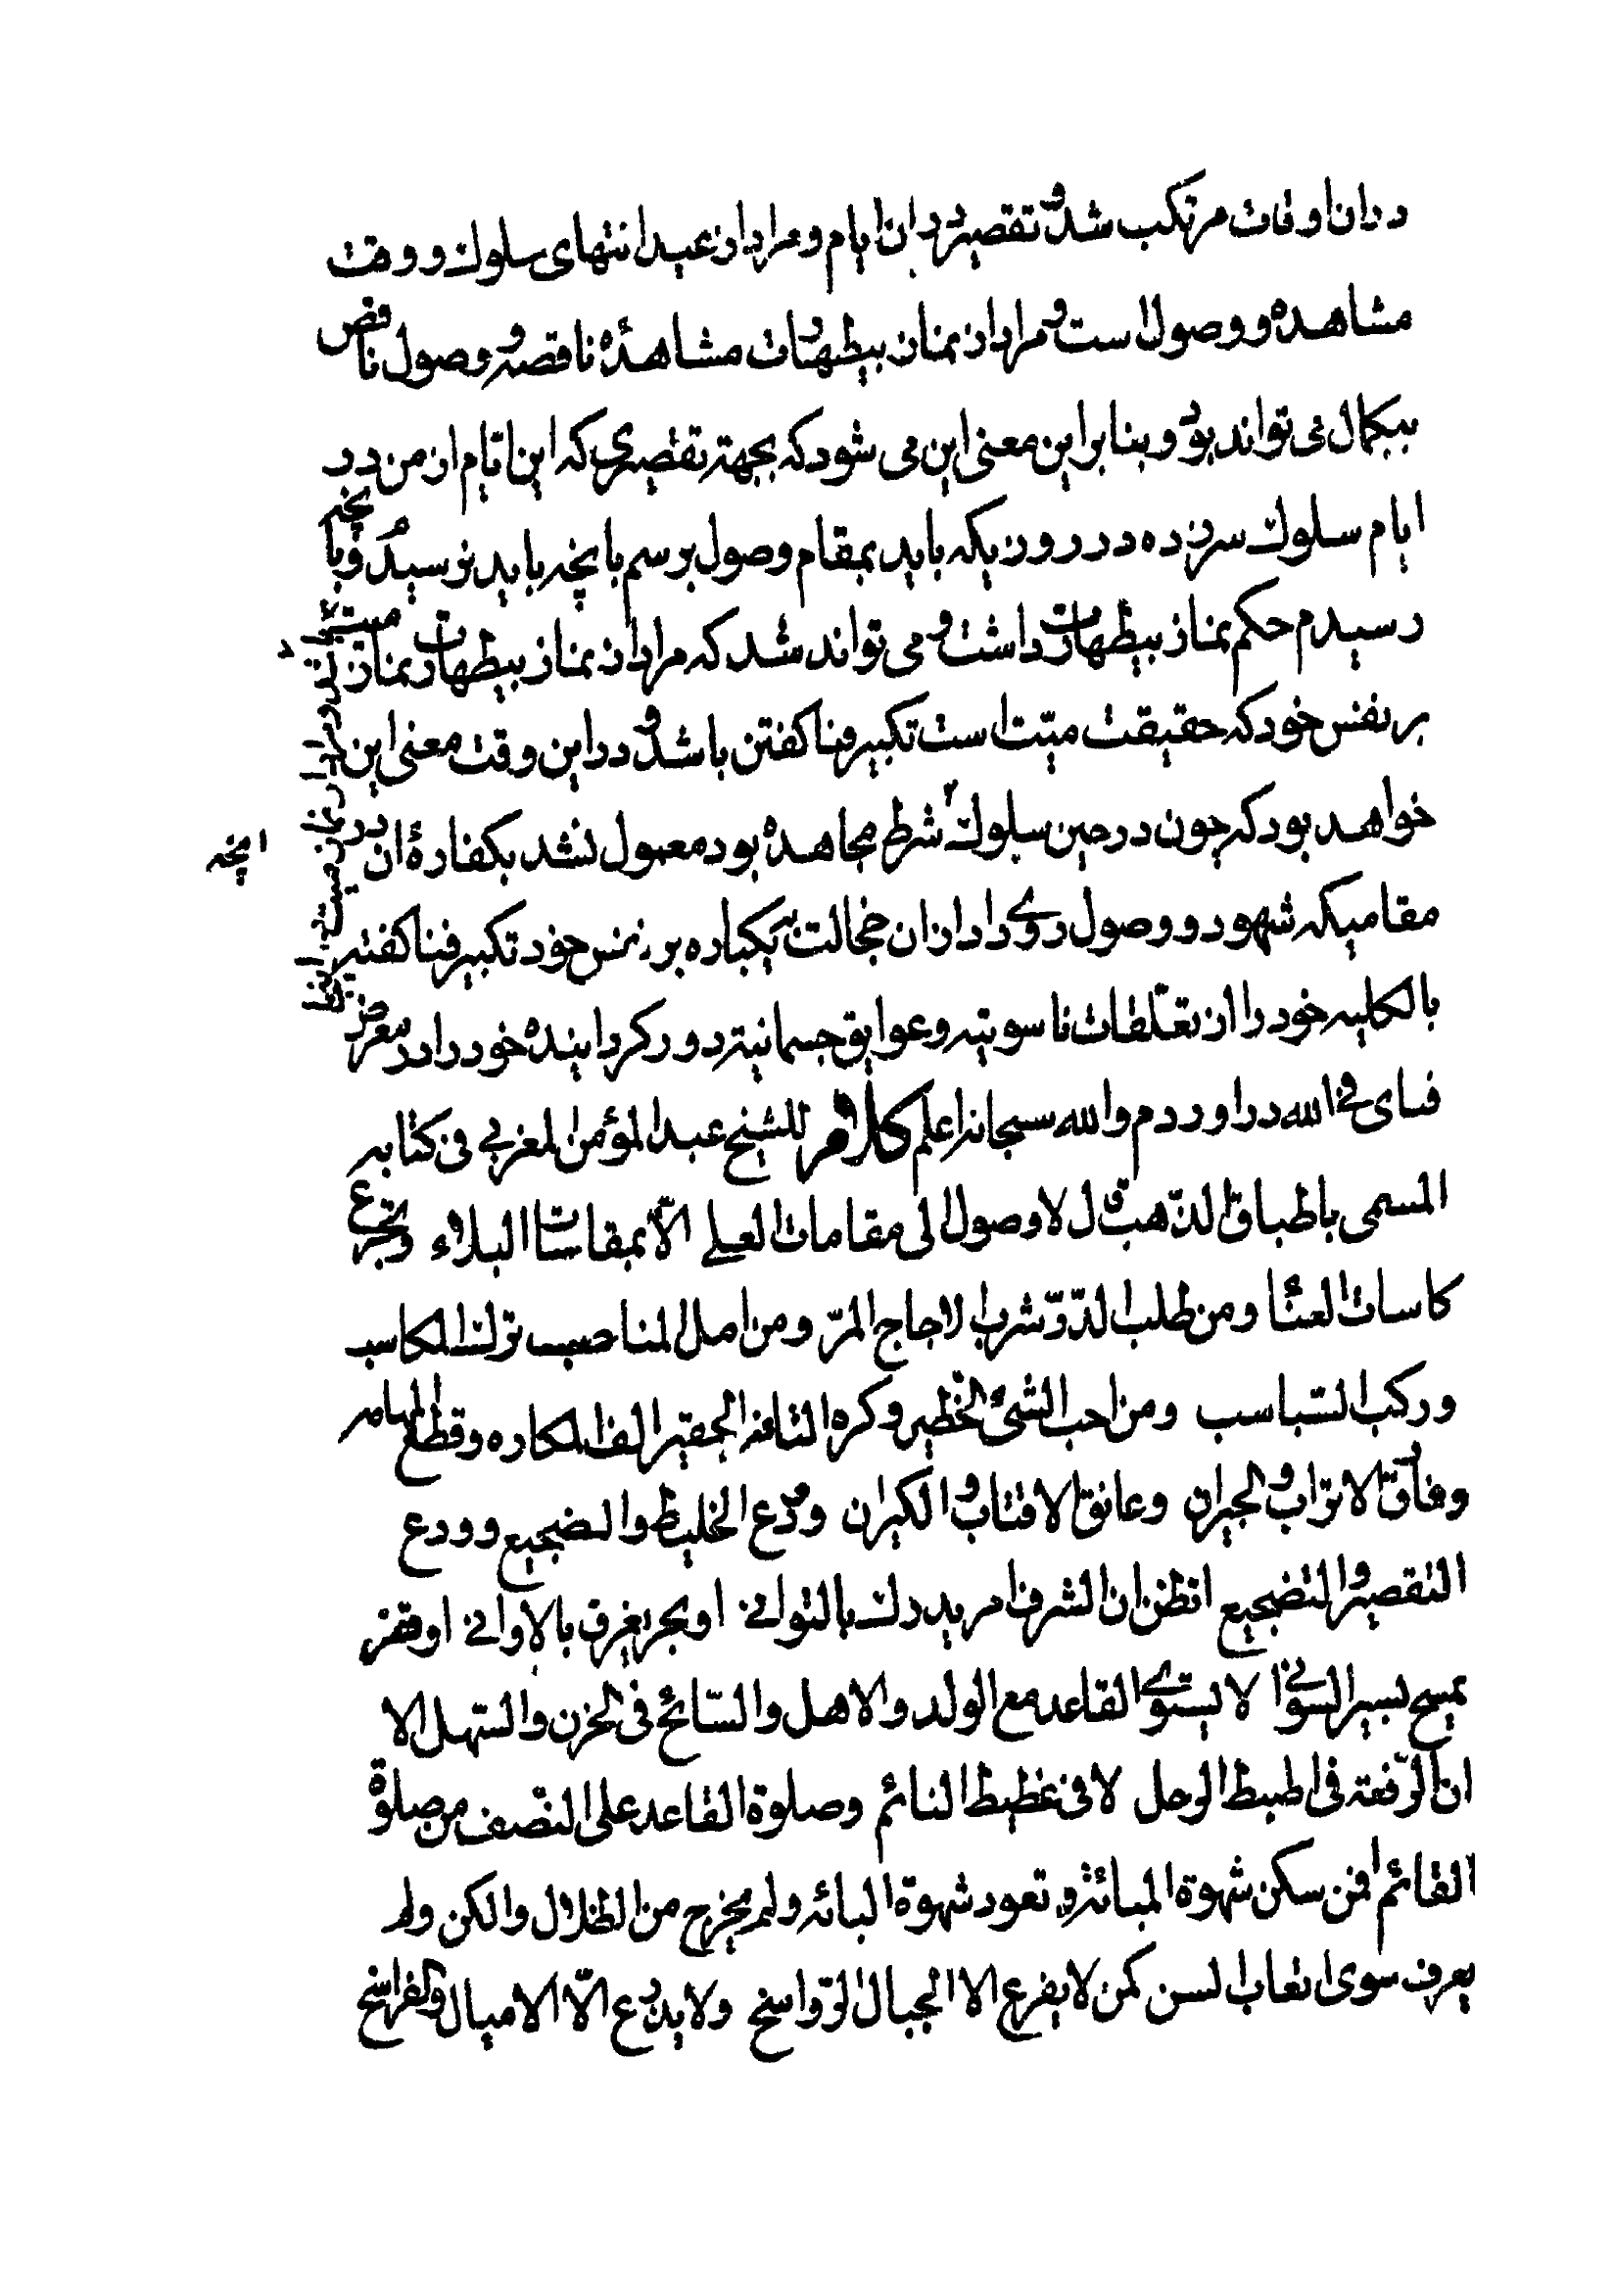 در ان اوقات مرتکب شد و تقصیر در ان ایام و مراد از عید انتهای سلوک و وقت
مشاهده و وصول است و مراد از نماز بیطهارت مشاهدهٔ ناقصه و وصول ناقص
بیکمال می تواند بود و بنا بر این معنی این می شود که بجهة تقصیری که این ناتمام از من در
ایام سلوک سر زده در روزیکه باید بمقام وصول برسم بانچه باید نرسیدم و بانچه
رسیدم حکم نماز بیطهارت داشت و می تواند شد که مراد از نماز بیطهارت نماز میت
بر نفس خود که حقیقت میّت است تکبیر فنا گفتن باشد و در این وقت معنی این
خواهد بود که چون در حین سلوک شرط مجاهده بود معمول نشد بکفارهٔ ان در
انچه
مقامیکه شهود و وصول روی داد از ان خجالت یکباره بر نفس خود تکبیر فنا گفته
بالکلیه خود را از تعلقات ناسوتیه و عوایق جسمانیة دور گردانیده خود را در معرض
فنای فی الله در اوردم والله سبحانه اعلم کلام للشیخ عبد المؤمن المغربی فی کتابه
المسمی باطباق الذّهب قال لا وصول الی مقامات العلی الّا بمقاسات البلاء و تجرع
کاسات العنا و من طلب الدّرّ شرب الاجاج المرّ و من امل المناصب ترک المکاسب
و رکب السّباسب و من احب الشئ الخطیر و کره التافه الحقیر الف المکاره و قطع المهامه
و فارق الاتراب و الجیران و عانق الاقتاب و الکیران و ودّع الخلیط و الضجیع و ودع
التقصیر و التضجیع اتظن ان الشرف امر یدرک بالتوانی او بحر یغرف بالاوانی او قفز
یمسح بسیر السّوانی لا یستوی القاعد مع الولد و الاهل و السّائح فی الحزن و السّهل الا
ان الرّفعة فی اطیط الرحل لا فی غطیط النائم و صلوة القاعد علی النّصف من صلوة
القائم افمن سکن شهوة المبائة و تعود شهوة البائه و لم یخرج من الظلال و الکن و لم
یعرف سوی اتعاب السن کمن لا یفرع الا الجبال الرّواسخ و لا یذرع الّا الامیال و الفراسخ